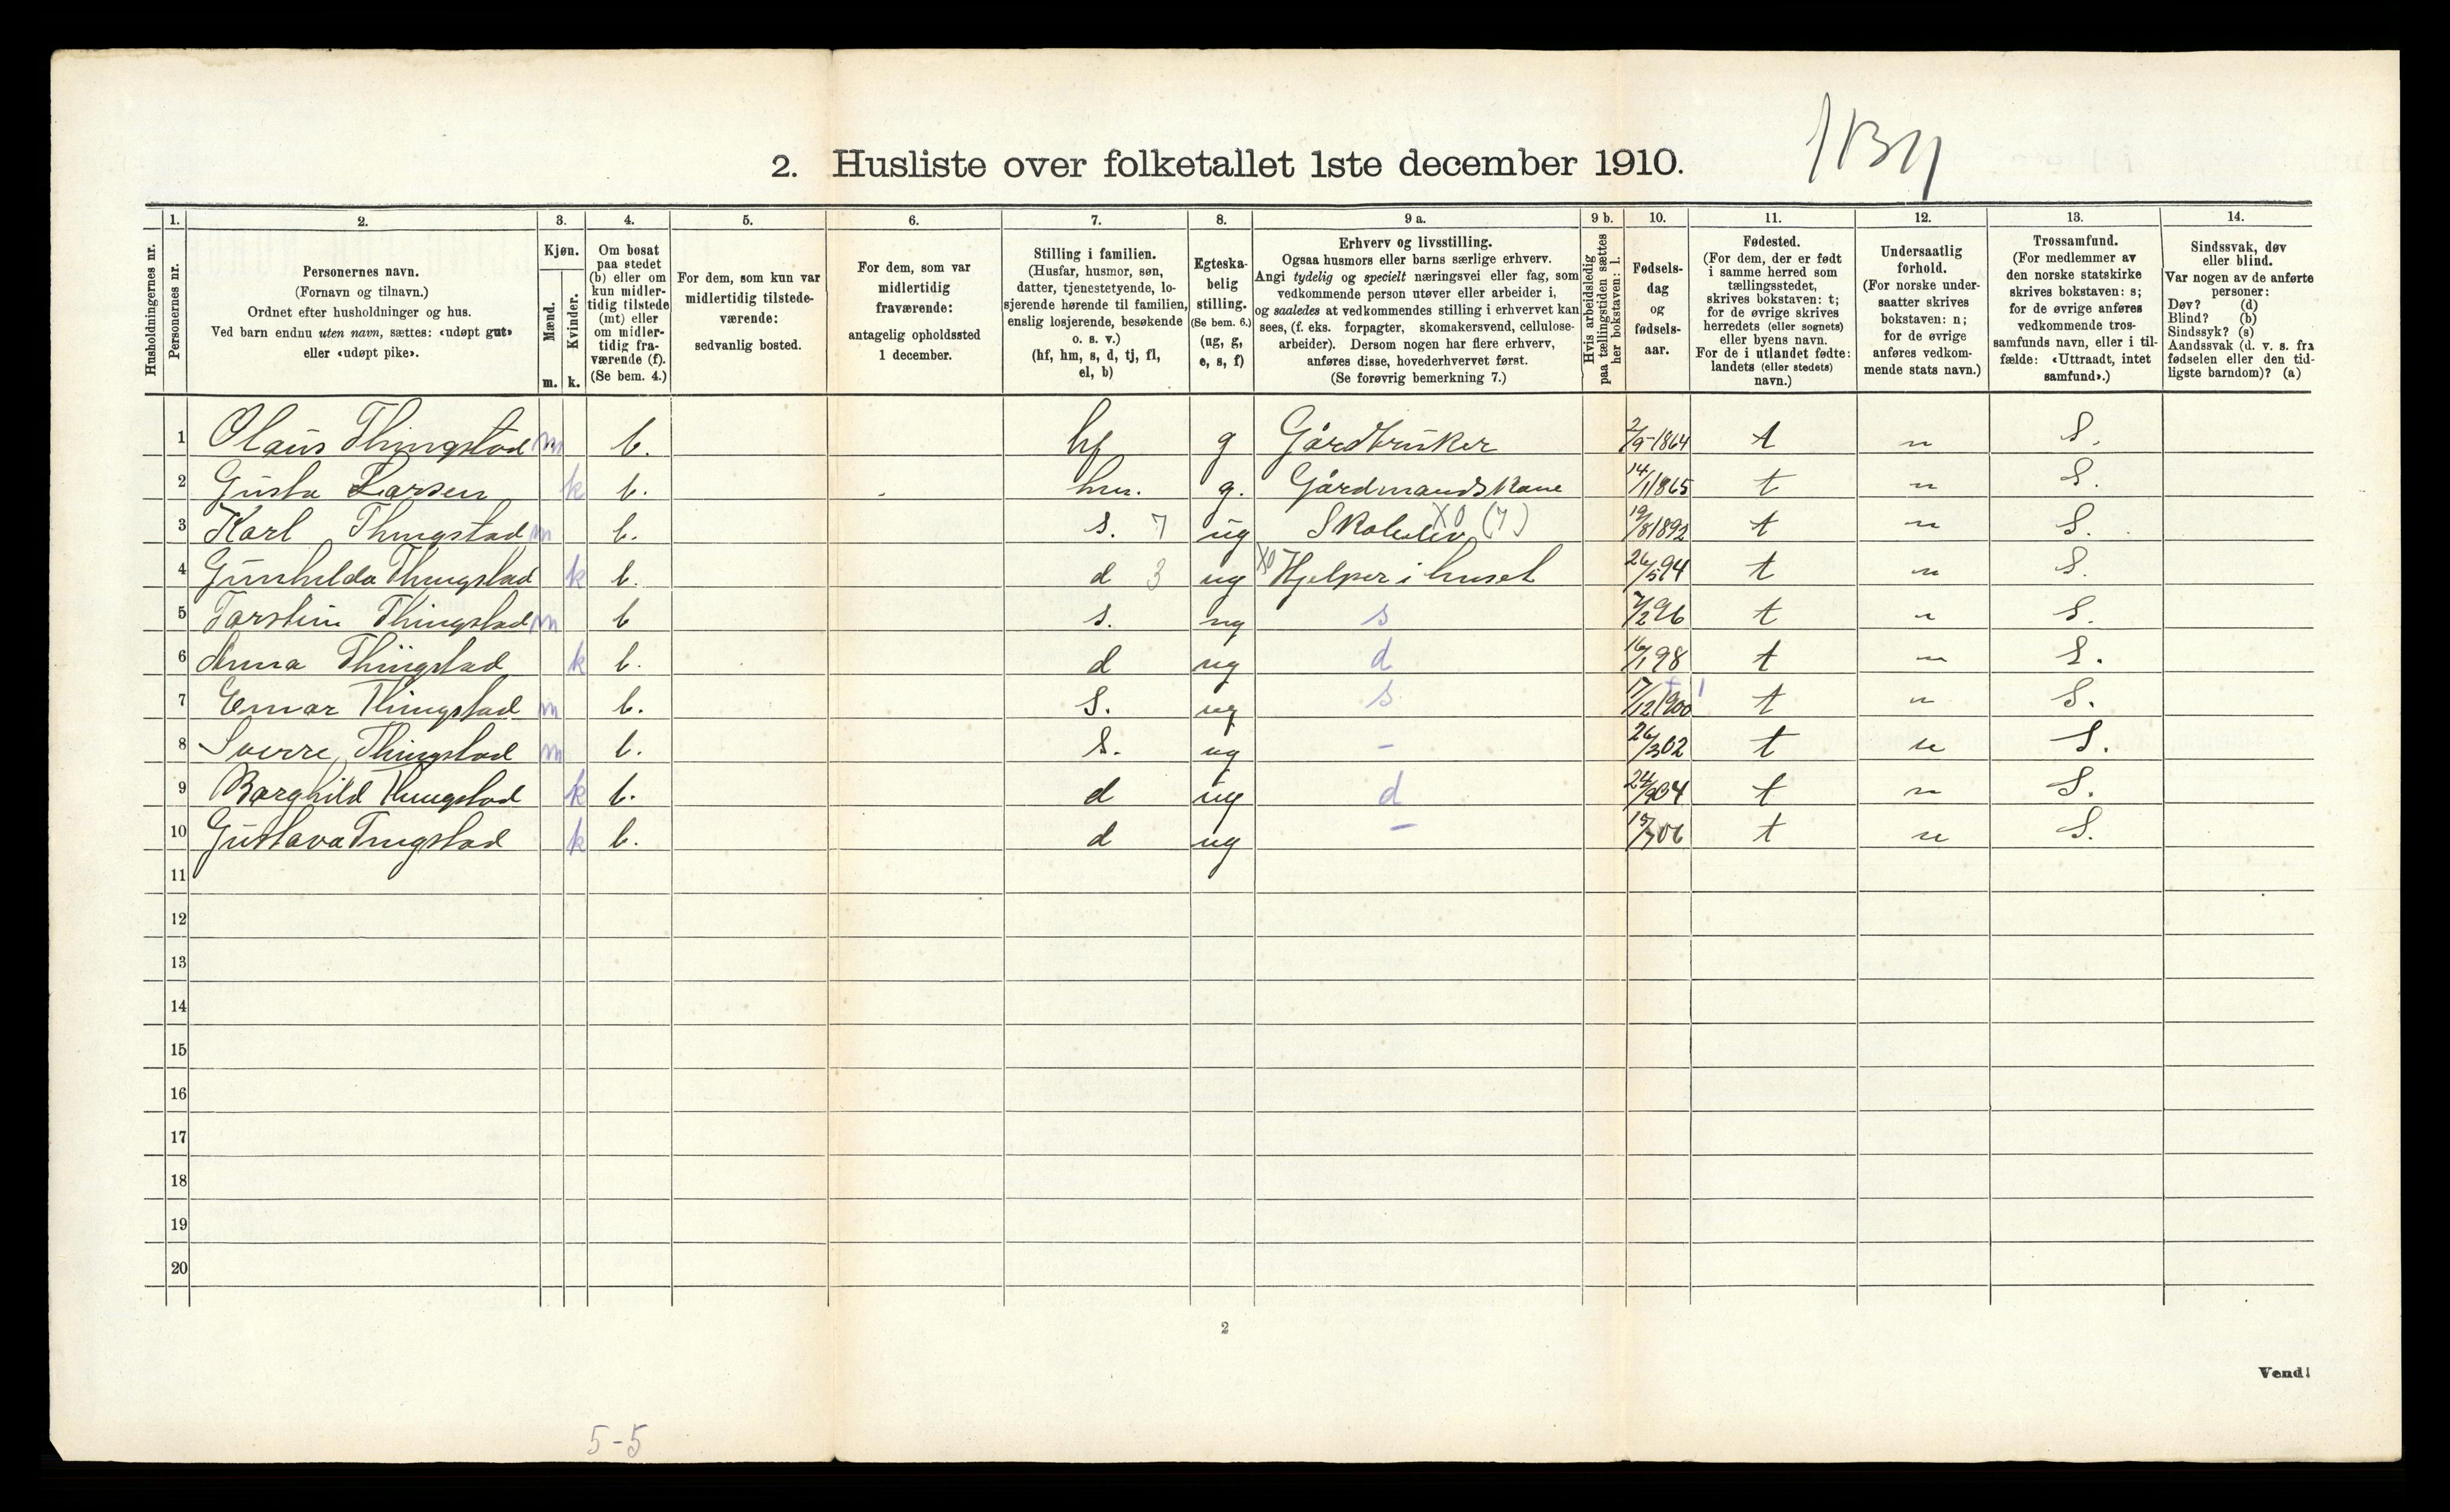 2. Husliste over folketallet 1ste december 1910.
Husholdningernes nr.
1.
Personernes nr.
2.
Personernes navn.
(Fornavn og tilnavn.)
Ordnet efter husholdninger og hus.
Ved barn endnu uten navn, sættes: «udøpt gut»
eller «udøpt pike».
3.
Kjøn.
Mænd.
Kvinder.
m. k.
4.
Om bosat
paa stedet
(b) eller om
kun midler-
tidig tilstede
(mt) eller
om midler-
tidig fra-
værende (f).
(Se bem. 4.)
5.
For dem, som kun var
midlertidig tilstede-
værende:
sedvanlig bosted.
6.
For dem, som var
midlertidig
fraværende:
antagelig opholdssted
1 december.
7.
Stilling i familien.
(Husfar, husmor, søn,
datter, tjenestetyende, lo-
sjerende hørende til familien,
enslig losjerende, besøkende
o. s. v.)
(hf, hm, s, d, tj, fl,
el, b)
8.
Egteska-
belig
stilling.
(Se bem. 6.)
(ug, g,
e, s, f)
9 a.
Erhverv og livsstilling.
Ogsaa husmors eller barns særlige erhverv.
Angi tydelig og specielt næringsvei eller fag, som
vedkommende person utøver eller arbeider i,
og saaledes at vedkommendes stilling i erhvervet kan
sees, (f. eks. forpagter, skomakersvend, cellulose-
arbeider). Dersom nogen har flere erhverv,
anføres disse, hovederhvervet først.
(Se forøvrig bemerkning 7.)
9 b.
Hvis arbeidsledig
paa tællingstiden sættes
her bokstaven: l.
10.
Fødsels-
dag
og
fødsels-
aar.
11.
Fødested.
(For dem, der er født
i samme herred som
tællingsstedet,
skrives bokstaven: t;
for de øvrige skrives
herredets (eller sognets)
eller byens navn.
For de i utlandet fødte:
landets (eller stedets)
navn.)
12.
Undersaatlig
forhold.
(For norske under-
saatter skrives
bokstaven: n;
for de øvrige
anføres vedkom-
mende stats navn.)
13.
Trossamfund.
(For medlemmer av
den norske statskirke
skrives bokstaven: s;
for de øvrige anføres
vedkommende tros-
samfunds navn, eller i til-
fælde: «Uttraadt, intet
samfund».)
14.
Sindssvak, døv
eller blind.
Var nogen av de anførte
personer:
Døv? (d)
Blind? (b)
Sindssyk? (s)
Aandssvak (d. v. s. fra
fødselen eller den tid-
ligste barndom)? (a)
1 Olaus Thingstad m b. hf g Gårdbruker 2/9-1864 t n S.
2 Gusta Larsen k b. hm. g. Gårdmandskone 14/1 1865 t n S.
3 Karl Thingstad m b. s. 7 ug Skoleelev X0 (7) 19/8 1892 t n S.
4 Gunhilda Thingstad k b. d 3 ug X0 Hjelper i huset 26/5 94 t n S.
5 Torstein Thingstad m b s. ug s 7/2 96 t n S.
6 Anna Thingstad k b. d ug d 16/1 98 t n S.
7 Einar Thingstad m b. S. ug s 17/12 1900 t n S.
8 Sverre Thingstad m b. S. ug - 26/3 02 t n S.
9 Borghild Thingstad k b. d ug d 24/9 04 t n S.
10 Gustava Tingstad k b. d ug - 15/7 06 t n S.
11
12
13
14
15
16
17
18
19
20
2
Vend!
5-5